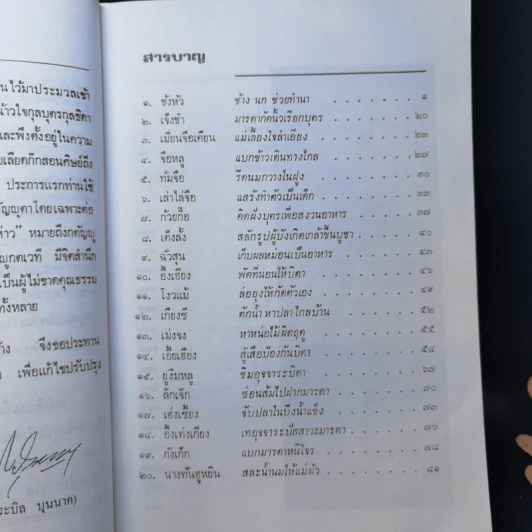 นไว้มาประมวลเข้า
น้าวใจกุลบุตรกุลธิดา
และพึงตั้งอยู่ในความ
ประการแรกท่านใช้
ญญุตาโดยเฉพาะต่อ
หมายถึงกตัญญู
ญูกตเวที มีจิตสำนึก
เป็นผู้ไม่ขาดคุณธรรม
ทั้งหลาย
จึงขอประทาน
เพื่อแก้ไขปรับปรุง
ระบิล บุนนาค)
สารบาญ
๑. ซังหัว ช้าง นก ช่วยทำนา . . . . . . . ๑
๒. เจ็งซำ มารดากัดนิ้วเรียกบุตร . . . . . . . ๒๐
๓. เมียนจือเคียน แม่เลี้ยงใจลำเอียง . . . . . . . ๒๓
๔. จือหลู แบกข้าวเดินทางไกล . . . . . . . ๒๗
๕. ทัมจือ รีดนมกวางในฝูง . . . . . . . ๓๐
๖. เล่าไล่จือ แสร้งทำตัวเป็นเด็ก . . . . . . . ๓๓
๗. ก๊วยก้อ คิดฝังบุตรเพื่อสงวนอาหาร . . . . . . . ๓๗
๘. เต็งลั้ง สลักรูปผู้บังเกิดเกล้าขึ้นบูชา . . . . . . . ๔๐
๙. ฉั่วสุน เก็บผลหม่อนเป็นอาหาร . . . . . . . ๔๓
๑๐. อึ้งเฮียง พัดที่นอนให้บิดา . . . . . . . ๔๖
๑๑. โงวแม้ ล่อยุงให้กัดตัวเอง . . . . . . . ๔๙
๑๒. เกียงซี ตักน้ำ หาปลาไกลบ้าน . . . . . . . ๕๒
๑๓. เม่งจง หาหน่อไม้ผิดฤดู . . . . . . . ๕๕
๑๔. เอี้ยเฮียง สู้เสือป้องกันบิดา . . . . . . . ๕๘
๑๕. ยูงิมหลู ชิมอุจจาระบิดา . . . . . . . ๖๗
๑๖. ลักเจ็ก ซ่อนส้มไปฝากมารดา . . . . . . . ๗๐
๑๗. เฮ่งเซี้ยง จับปลาในบึงน้ำแข็ง . . . . . . . ๗๓
๑๘. อึ้งเท่งเกียง เทอุจจาระปัสสาวะมารดา . . . . . . . ๗๖
๑๙. กังเก็ก แบกมารดาหนีโจร . . . . . . . ๗๘
๒๐. นางทั่นฮูหยิน สละน้ำนมให้แม่ผัว . . . . . . . ๘๑